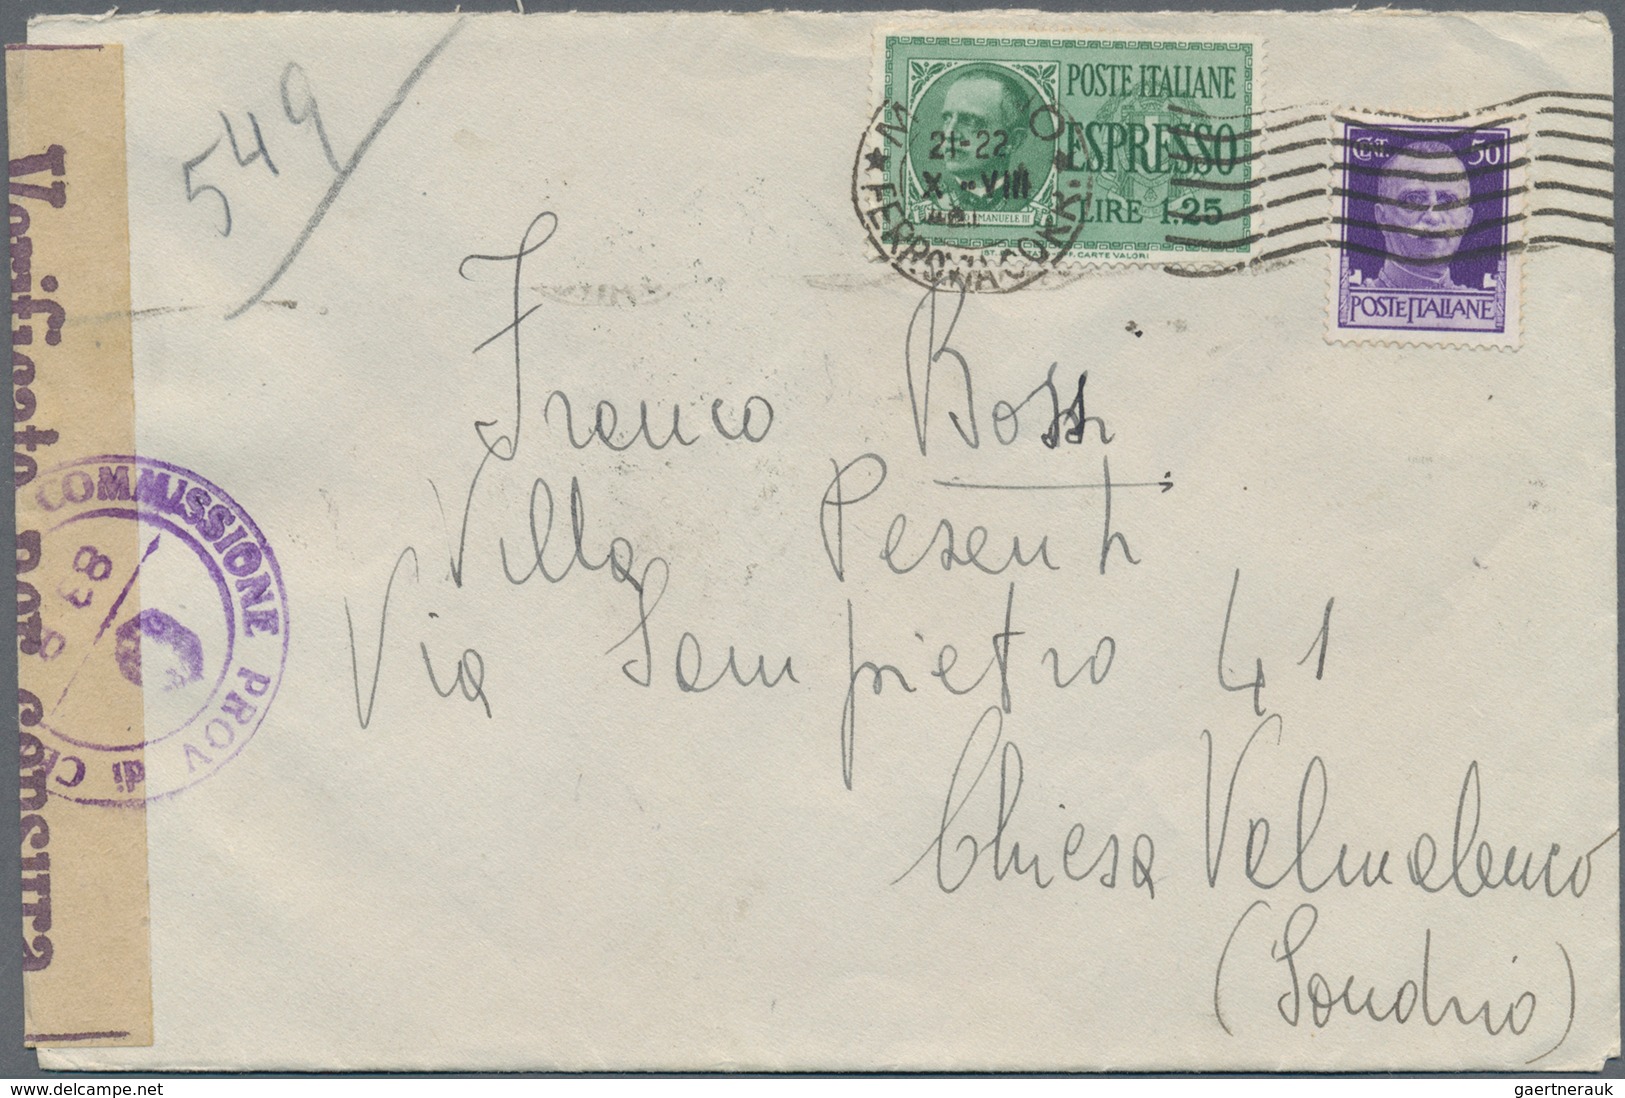 549
POSTE ITALIANE
ESPRESSO
LIRE 1.25
CENT. 50
POSTE ITALIANE
21-22
VIII
42
FERROVIA
CARTE VALORI
Franco Rossi
Villa Pesenti
Via Sampietro 41
Chiesa Valmalenco
(Sondrio)
Verificato per censura
COMMISSIONE PROV
di
83
gaertnerauk • delcampe.net